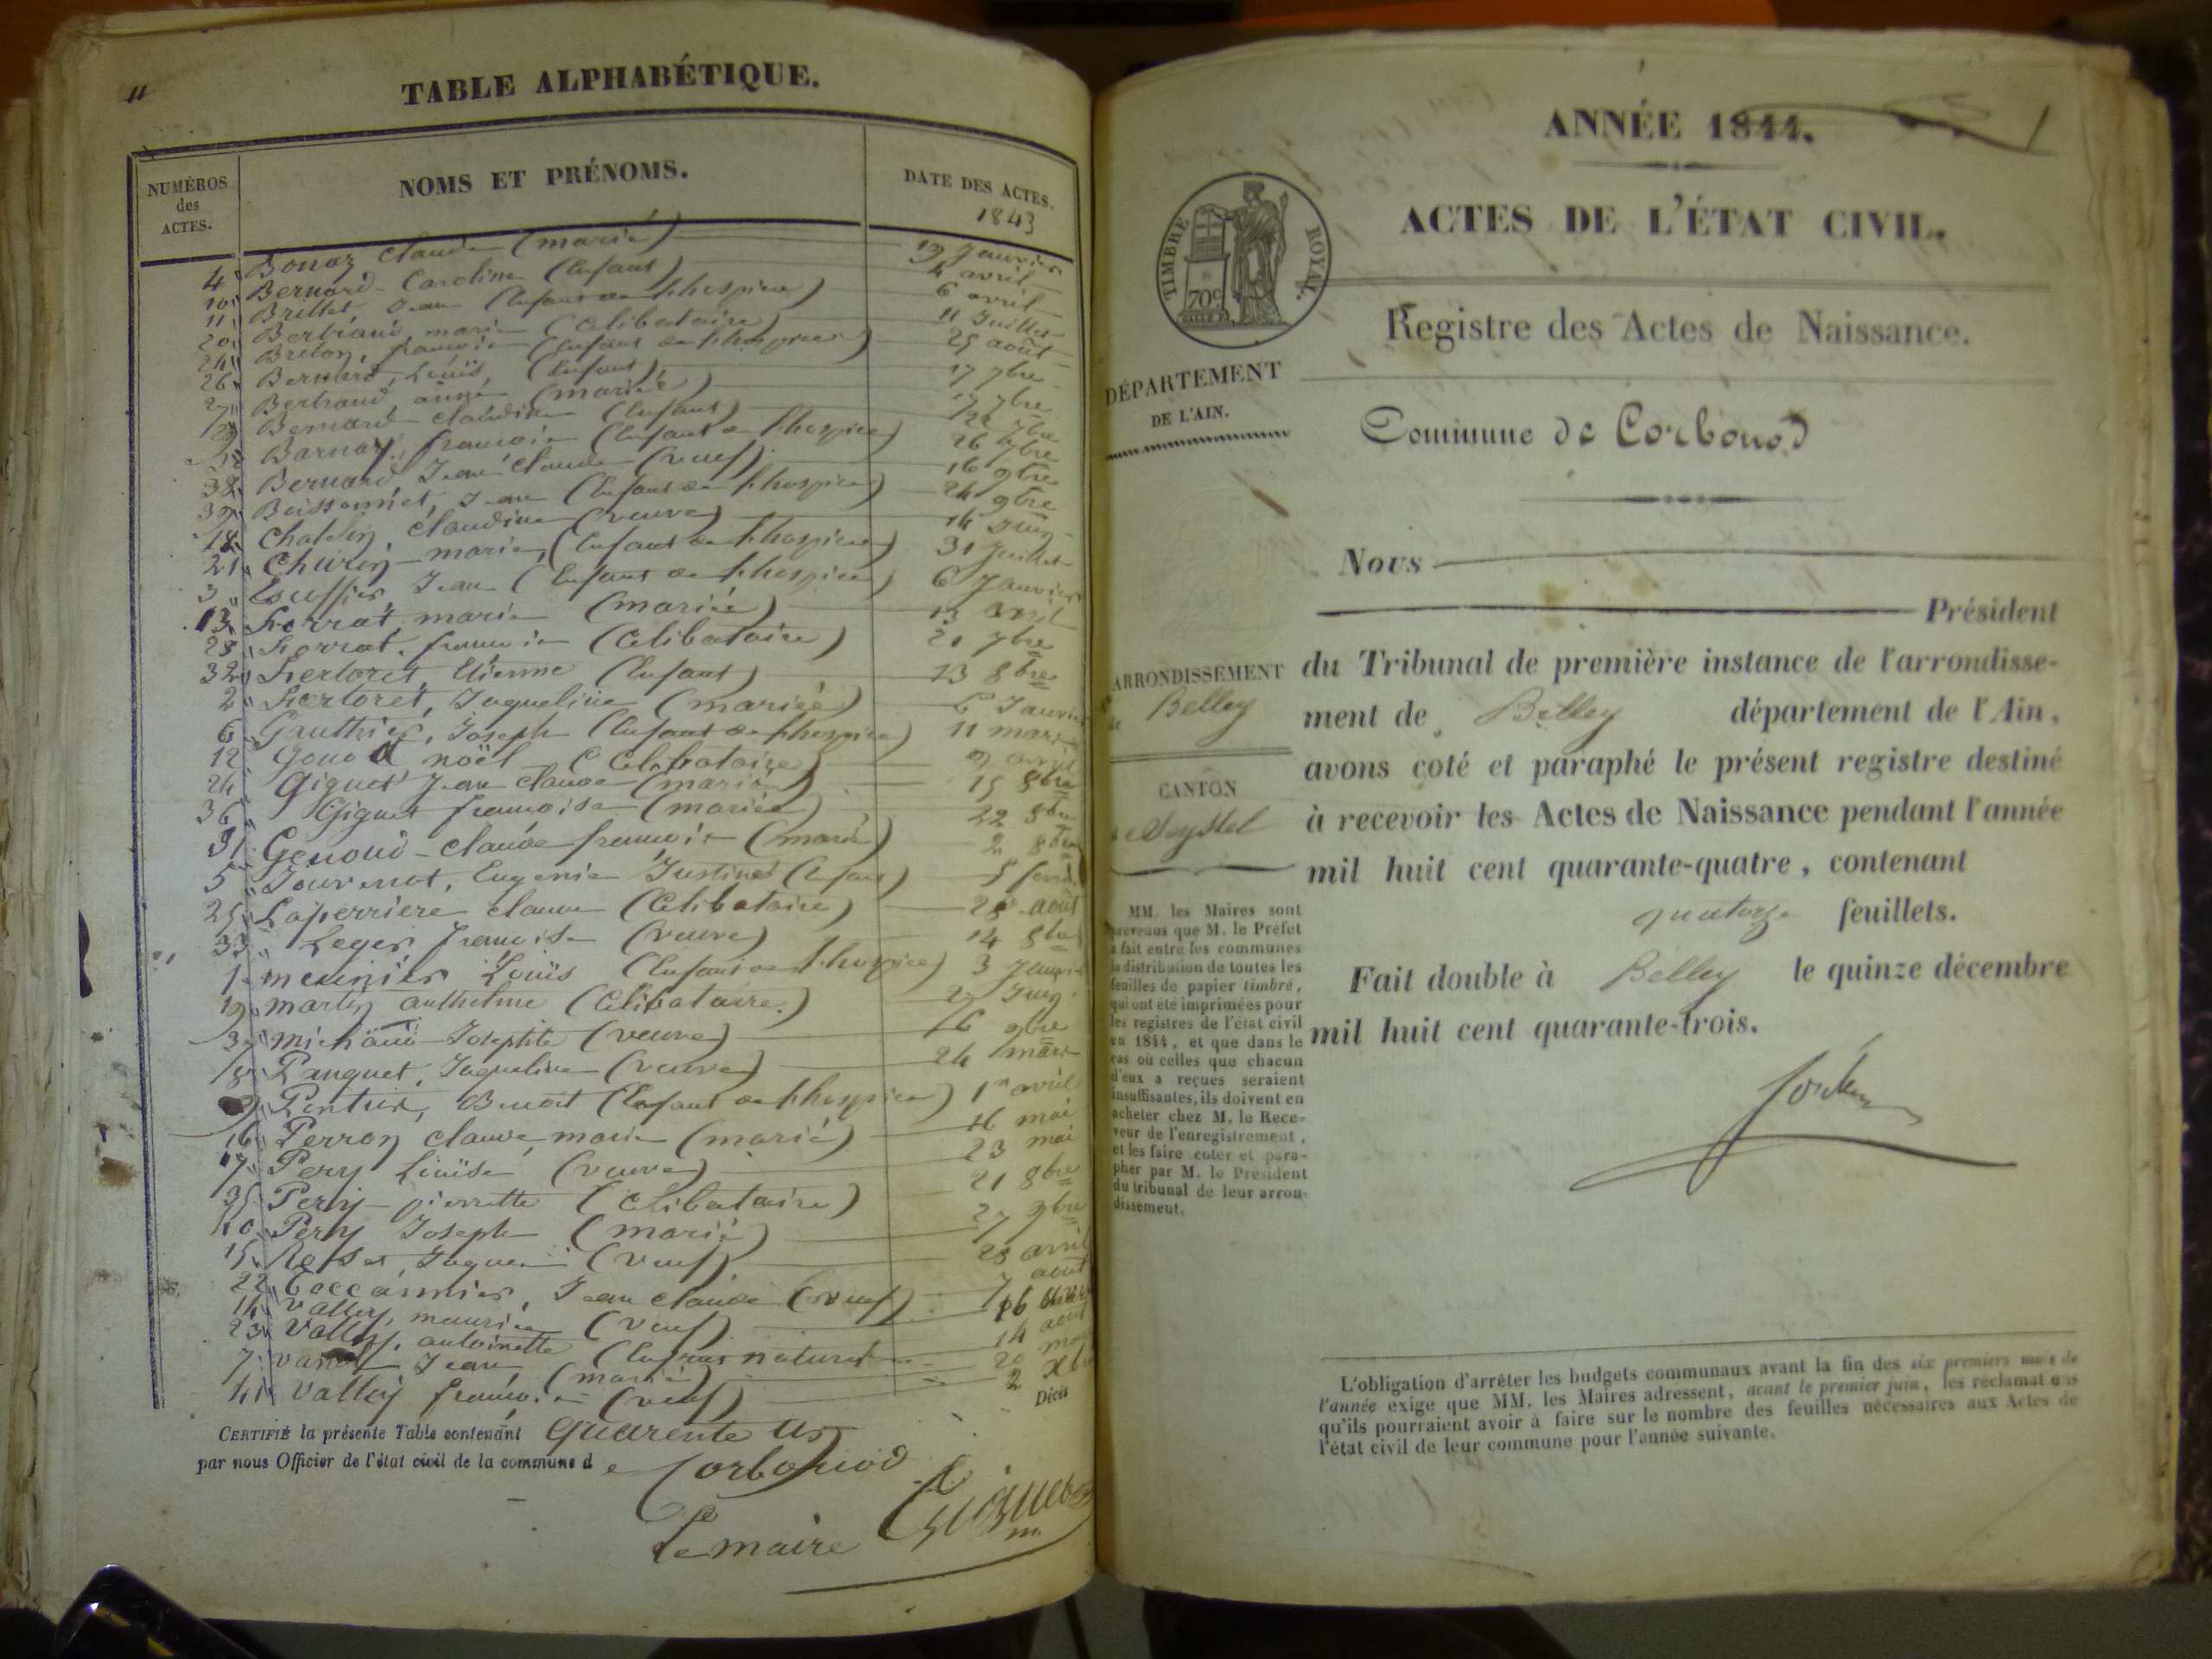 11
TABLE ALPHABÉTIQUE.
NUMÉROS
des
ACTES.
NOMS ET PRÉNOMS.
DATE DES ACTES.
1843
4 Bonaz Claude (marié) 19 Janvier
10 Bernard Caroline (Enfant) 4 avril
11 Brillet Jean (Enfant de l'hospice) 6 avril
20 Bertrand, marie (Celibataire) 11 Juillet
24 Breton, françois (Enfant de l'hospice) 25 août
26 Bernard, Louïs, (Enfant) 17 7bre
27 Bertrand anne (mariée) 17 7bre
29 Bernard Claudine (Enfant) 22 7bre
Barnay, françois (Enfant de l'hospice) 26 7bre
38 Bernard, Jean Claude (veuf) 16 9bre
39 Boissonnet, Jean (Enfant de l'hospice) 24 9bre
18 Chatelin, Claudine (veuve) 14 Juin
21 marie, (Enfant de l'hospice) 31 Juillet
3 Escoffier Jean (Enfant de l'hospice) 6 Janvier
13 Forrat, marie (mariée) 13 avril
28 Forrat, françois (Celibataire) 21 7bre
32 Fertoret, Etienne (Enfant) 13 8bre
2 Fertoret, Jaqueline (mariée) 6 Janvier
6 Gauthier, Joseph (Enfant de l'hospice) 11 mars
12 Gonod noël (Celibataire) 9 avril
24 Giguet Jean Claude (marié) 15 8bre
36 Giguet françoise (mariée) 22 8bre
31 Genoud Claude françois (marié) 2 8bre
5 Jouvenot, Eugenie Justine (Enfant) 5
25 Laperriere Claude (Celibataire) 28 août
33 Leger, françoise (veuve) 14 8bre
1 meunier Louïs (Enfant de l'hospice) 3 Janvier
19 martin anthelme (Celibataire) 27 Juin
3 michaud Josephte (veuve) 16 9bre
8 Panguet, Jaqueline (veuve) 24 mars
9 Benoit (Enfant de l'hospice) 1er avril
16 Perron Claude marie (marié) 16 mai
17 Pery Louïse (veuve) 23 mai
35 Pery pierrette (Celibataire) 21 8bre
40 Pery Joseph (marié) 27 9bre
15 Jaques (veuf) 28 avril
22 Toccannier, Jean Claude (veuf) 7 août
14 Valley, maurice (veuf) 16
23 Vallet, antoinette (Enfant naturel 14 août
7 Jean (marié) 20 mars
41 Valley françois (veuf) 2 Xbre
Décès
CERTIFIÉ la présente Table contenant quarente un
par nous Officier de l'état civil de la commune de Corbonod
Le maire
1
ANNÉE 1844.
ACTES DE L'ÉTAT CIVIL.
TIMBRE ROYAL.
70c
Registre des Actes de Naissance.
DÉPARTEMENT
DE L'AIN.
Commune de Corbonod
Nous
Président
ARRONDISSEMENT
de Belley
du Tribunal de première instance de l'arrondisse-
ment de Belley département de l'Ain,
avons coté et paraphé le présent registre destiné
à recevoir les Actes de Naissance pendant l'année
mil huit cent quarante-quatre, contenant
quatorze feuillets.
CANTON
de Seyssel
Fait double à Belley le quinze décembre
mil huit cent quarante-trois.
MM. les Maires sont
prévenus que M. le Préfet
a fait entre les communes
la distribution de toutes les
feuilles de papier timbré,
qui ont été imprimées pour
les registres de l'état civil
en 1844, et que dans le
cas où celles que chacun
d'eux a reçues seraient
insuffisantes, ils doivent en
acheter chez M. le Rece-
veur de l'enregistrement,
et les faire coter et para-
pher par M. le Président
du tribunal de leur arron-
dissement.
L'obligation d'arrêter les budgets communaux avant la fin des six premiers mois de
l'année exige que MM. les Maires adressent, avant le premier juin, les réclamations
qu'ils pourraient avoir à faire sur le nombre des feuilles nécessaires aux Actes de
l'état civil de leur commune pour l'année suivante.